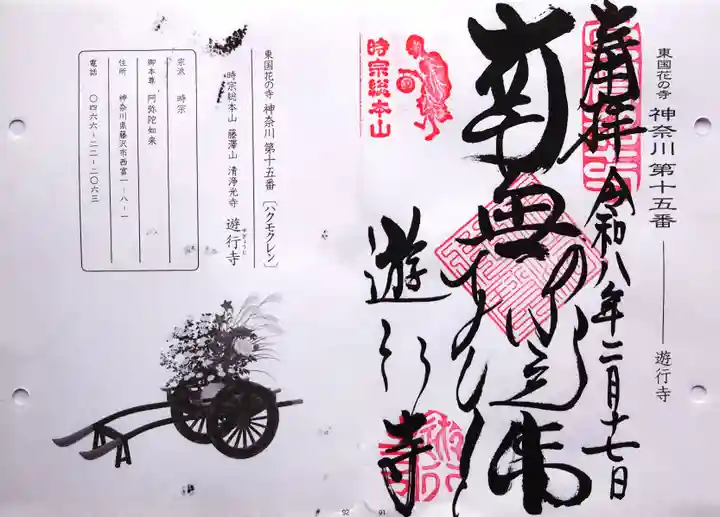 東国花の寺 神奈川 第十五番 ―― 遊行寺
奉拝 令和八年二月十七日
南無
遊行寺
時宗総本山
東国花の寺 神奈川 第十五番 〔ハクモクレン〕
時宗総本山 藤澤山 清浄光寺 遊行寺
ゆぎょうじ
宗派 時宗
御本尊 阿弥陀如来
住所 神奈川県藤沢市西富一-八-一
電話 〇四六六-二二-二〇六三
92
91